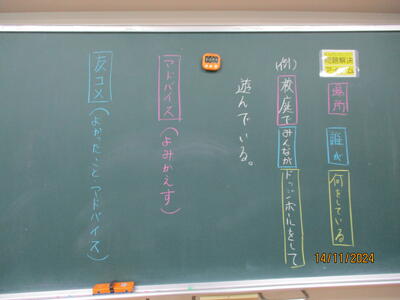 問題解決
タイム
場所 誰が 何をしている
(例) 校庭でみんながドッジボールをして
遊んでいる。
アドバイス(よみかえす)
友コメ(よかったこと アドバイス)
14/11/2024